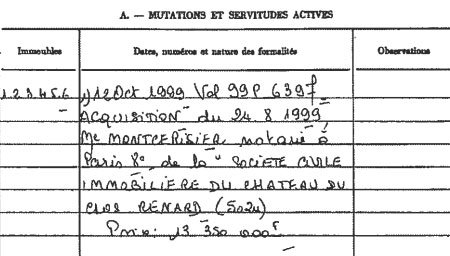 A. — MUTATIONS ET SERVITUDES ACTIVES
Immeubles
Dates, numéros et nature des formalités
Observations
1 2 3 4 5 6
1) 12 Oct 1999 Vol 99 P 6397
ACQUISITION du 24. 8 1999,
Me MONTCERISIER, notaire à
Paris 8e, de la "SOCIETE CIVILE
IMMOBILIERE DU CHATEAU DU
CLOS RENARD (5024)
Prix: 13 350 000F